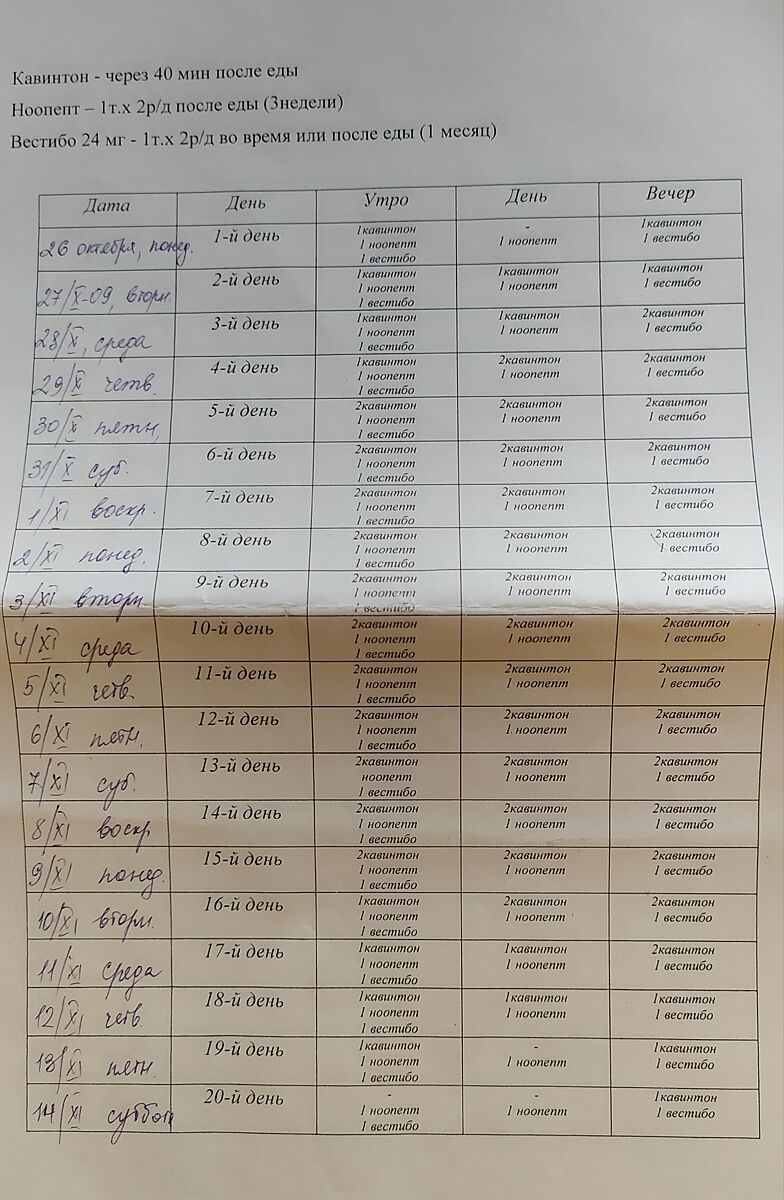 Кавинтон - через 40 мин после еды
Ноопепт – 1т.х 2р/д после еды (3недели)
Вестибо 24 мг - 1т.х 2р/д во время или после еды (1 месяц)
Дата День Утро День Вечер
26 октября, понед. 1-й день 1кавинтон - 1кавинтон
1 ноопепт 1 ноопепт 1 вестибо
1 вестибо
27/X-09, вторн. 2-й день 1кавинтон 1кавинтон 1кавинтон
1 ноопепт 1 ноопепт 1 вестибо
1 вестибо
28/X, среда 3-й день 1кавинтон 1кавинтон 2кавинтон
1 ноопепт 1 ноопепт 1 вестибо
1 вестибо
29/X четв. 4-й день 1кавинтон 2кавинтон 2кавинтон
1 ноопепт 1 ноопепт 1 вестибо
1 вестибо
30/X пятн, 5-й день 2кавинтон 2кавинтон 2кавинтон
1 ноопепт 1 ноопепт 1 вестибо
1 вестибо
31/X суб. 6-й день 2кавинтон 2кавинтон 2кавинтон
1 ноопепт 1 ноопепт 1 вестибо
1 вестибо
1/XI воскр. 7-й день 2кавинтон 2кавинтон 2кавинтон
1 ноопепт 1 ноопепт 1 вестибо
1 вестибо
2/XI понед. 8-й день 2кавинтон 2кавинтон 2кавинтон
1 ноопепт 1 ноопепт 1 вестибо
1 вестибо
3/XI вторн. 9-й день 2кавинтон 2кавинтон 2кавинтон
1 ноопепт 1 ноопепт 1 вестибо
1 вестибо
4/XI среда 10-й день 2кавинтон 2кавинтон 2кавинтон
1 ноопепт 1 ноопепт 1 вестибо
1 вестибо
5/XI четв. 11-й день 2кавинтон 2кавинтон 2кавинтон
1 ноопепт 1 ноопепт 1 вестибо
1 вестибо
6/XI пятн. 12-й день 2кавинтон 2кавинтон 2кавинтон
1 ноопепт 1 ноопепт 1 вестибо
1 вестибо
7/XI суб. 13-й день 2кавинтон 2кавинтон 2кавинтон
ноопепт 1 ноопепт 1 вестибо
1 вестибо
8/XI воскр 14-й день 2кавинтон 2кавинтон 2кавинтон
1 ноопепт 1 ноопепт 1 вестибо
1 вестибо
9/XI понед. 15-й день 2кавинтон 2кавинтон 2кавинтон
1 ноопепт 1 ноопепт 1 вестибо
1 вестибо
10/XI вторн. 16-й день 1кавинтон 2кавинтон 2кавинтон
1 ноопепт 1 ноопепт 1 вестибо
1 вестибо
11/XI среда 17-й день 1кавинтон 1кавинтон 2кавинтон
1 ноопепт 1 ноопепт 1 вестибо
1 вестибо
12/XI четв. 18-й день 1кавинтон 1кавинтон 1кавинтон
1 ноопепт 1 ноопепт 1 вестибо
1 вестибо
13/XI пятн. 19-й день 1кавинтон - 1кавинтон
1 ноопепт 1 ноопепт 1 вестибо
1 вестибо
14/XI суббот 20-й день - - 1кавинтон
1 ноопепт 1 ноопепт 1 вестибо
1 вестибо